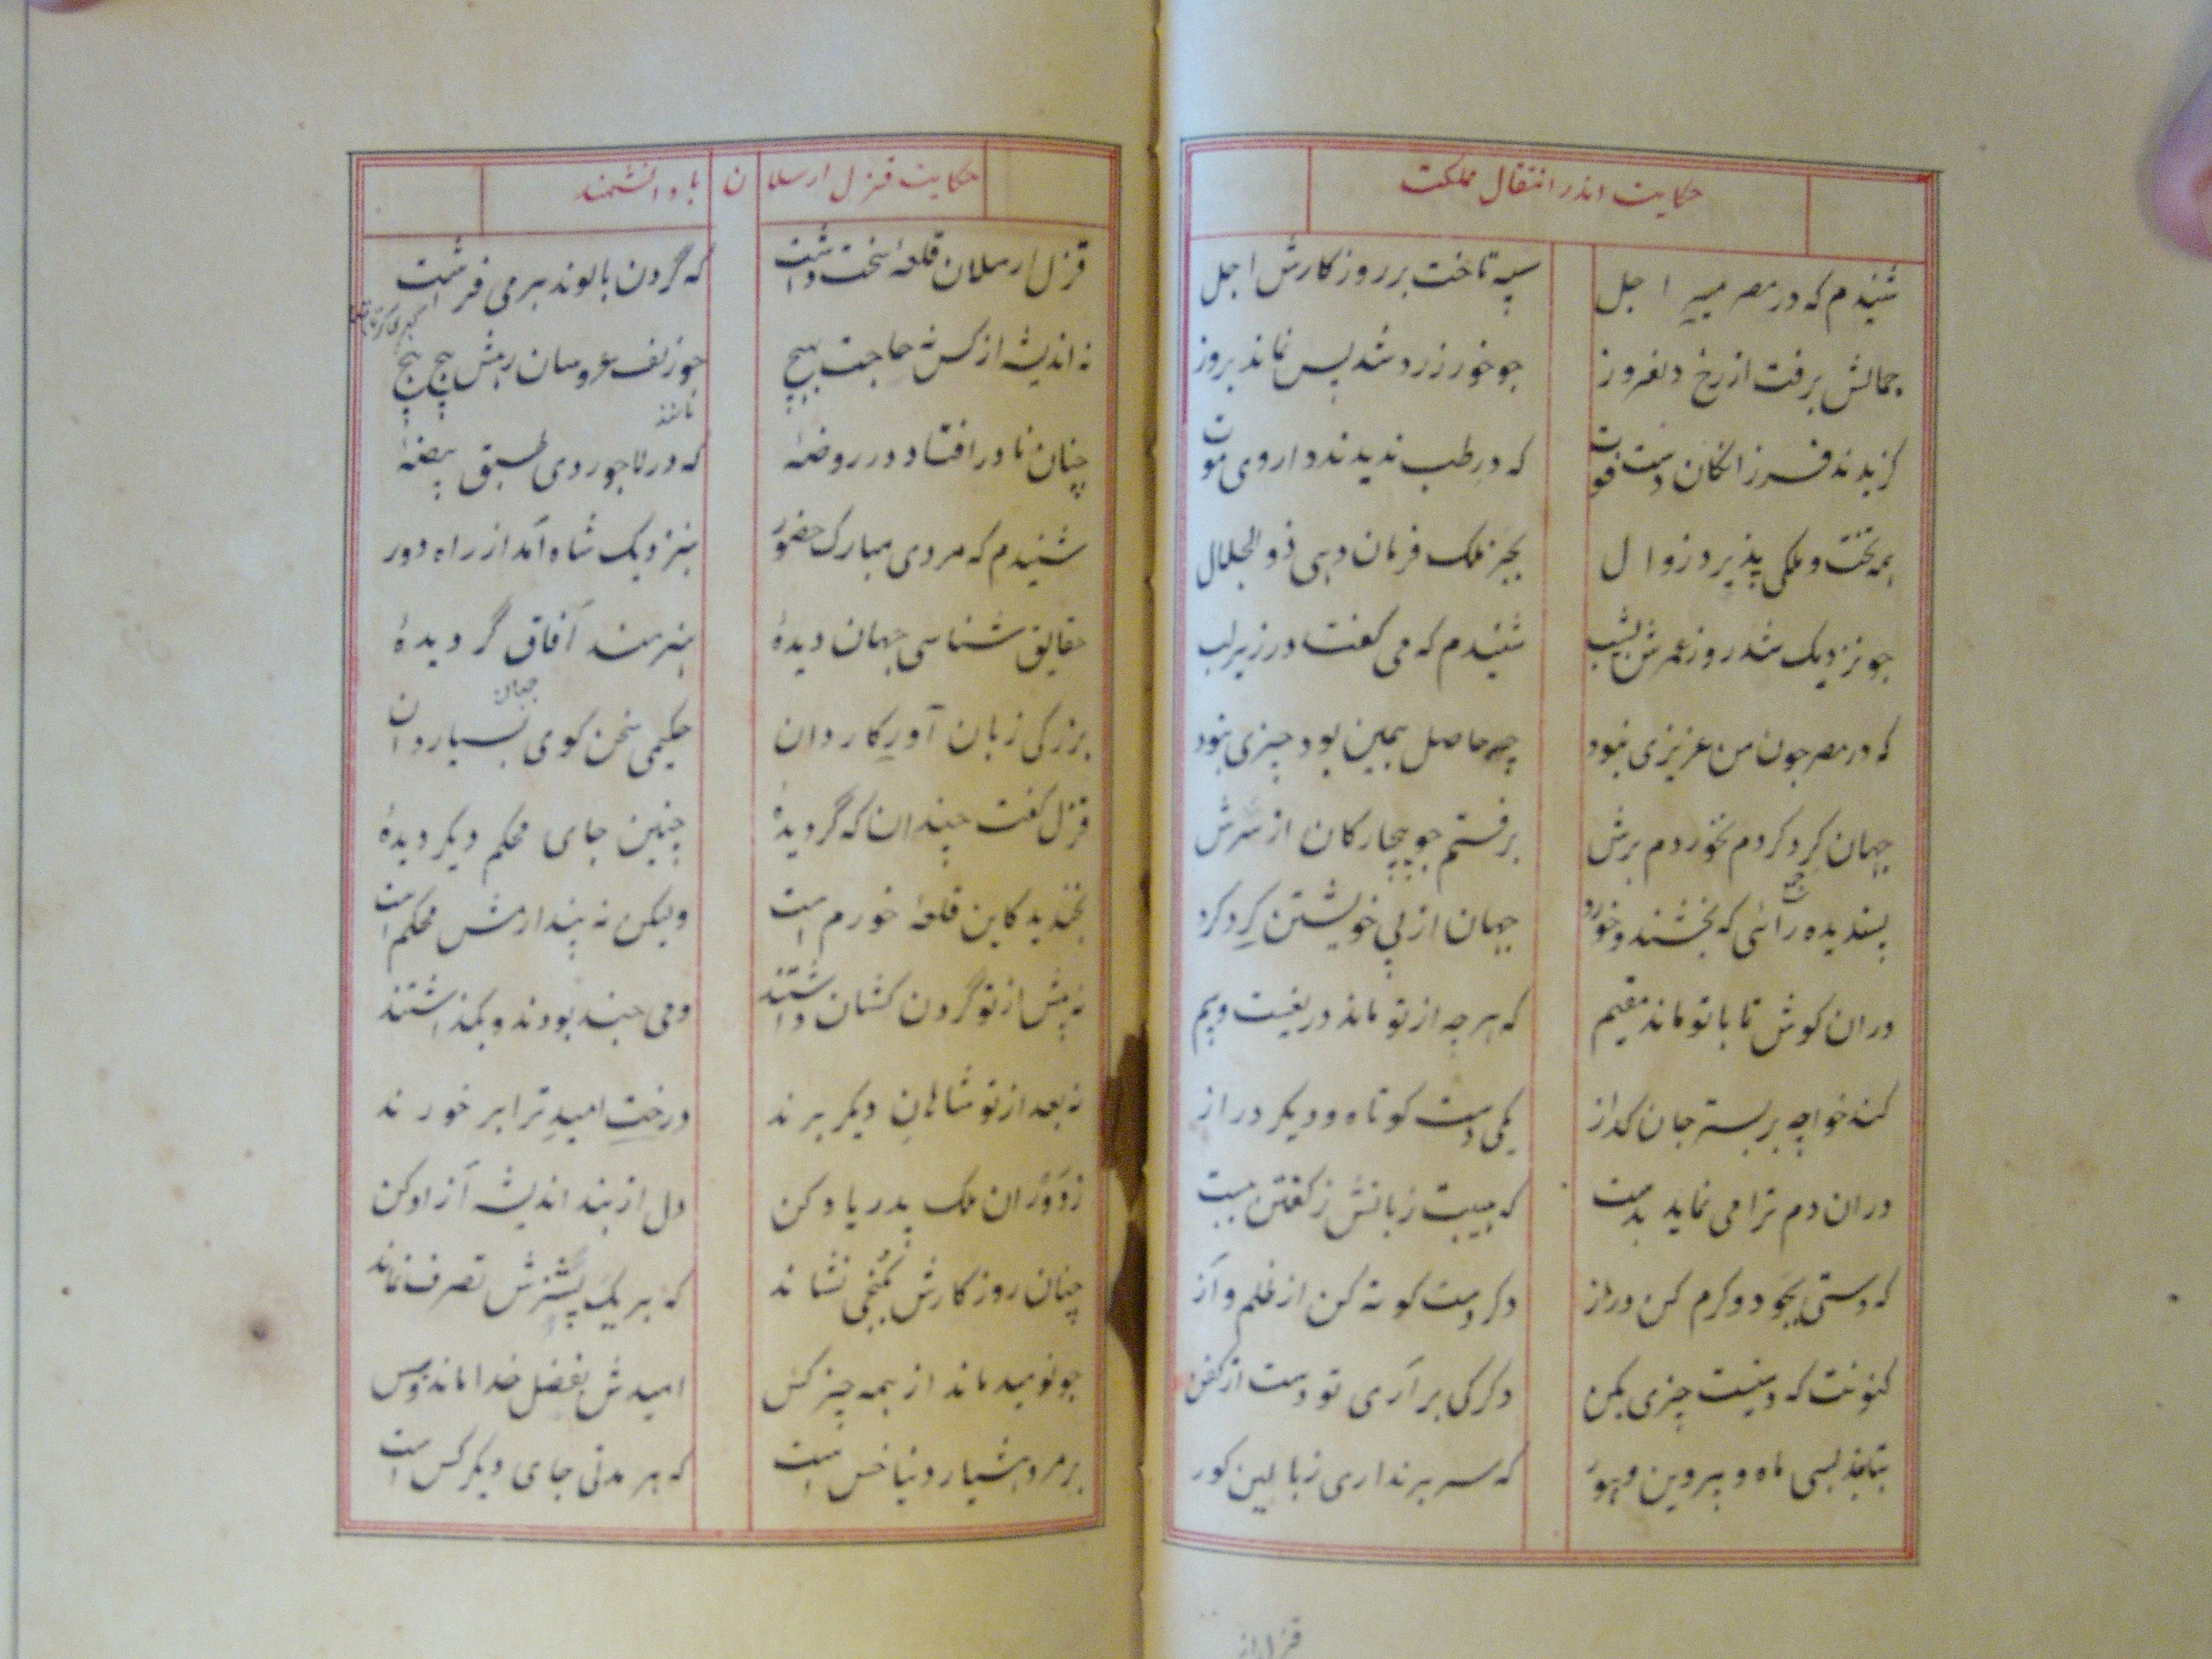 حکایت اندر انتقال مملکت
شنیدم که در مصر میر اجل سپه تاخت بر روزکارش اجل
جمالش برفت از رخ دلفروز جو خور زرد شد پس نماند بروز
کزیدند فرزانکان دست فوت که در طب ندیدند داروی موت
همه تخت و ملکی پذیرد زوال بجز ملک فرمان دهی ذوالجلال
جو نزدیک شد روز عمرش بشب شنیدم که می کفت در زیر لب
که در مصر جون من عزیزی نبود چه حاصل همین بود چیزی نبود
جهان کرد کردم نخوردم برش برفتم جو بیچارکان از سرش
پسندیده رائی که بخشند و خورد جهان از پی خویشتن کرد کرد
در ان کوش تا با تو ماند مقیم که هر چه از تو ماند دریغست و بیم
کند خواجه بر بستر جان کداز یکی دست کوتاه و دیکر دراز
در ان دم ترا می نماید بدست که هیبت زبانش ز کفتن ببست
که دستی بجود و کرم کن دراز دکر دست کوته کن از ظلم و آز
کنونت که دستست چیزی بکن دکر کی بر آری تو دست از کفن
بتابد بسی ماه و پروین و هور که سر بر نداری ز بالین کور
قزل ار
حکایت قزل ارسلان با دانشمند
قزل ارسلان قلعهٔ سخت داشت که گردن بالوند بر می فرشت
نه اندیشه از کس نه حاجت بهیچ جو زلف عروسان رهش پیچ پیچ
چنان نادر افتاد در روضهٔ که در لاجوردی طبق بیضهٔ
شنیدم که مردی مبارک حضور بنزدیک شاه آمد از راه دور
حقایق شناسی جهان دیدهٔ هنرمند آفاق گردیدهٔ
جهان
بزرکی زبان آور کاردان حکیمی سخن کوی بسیاردان
قزل کفت چندان که گردیدهٔ چنین جای محکم دیکر دیدهٔ
بخندید کاین قلعهٔ خورم است ولیکن نه پندارمش محکم است
نه پیش از تو گردن کشان داشتند دمی چند بودند و بکذاشتند
نه بعد از تو شاهان دیکر برند درخت امید ترا بر خورند
ز دوران ملک پدر یاد کن دل از بند اندیشه آزاد کن
چنان روزکارش بکنجی نشاند که بر یک پشیزش تصرف نماند
جو نومید ماند از همه چیز کس امیدش بفضل خدا ماند و بس
بر مرد هشیار دنیا خس است که هر مدتی جای دیکر کس است